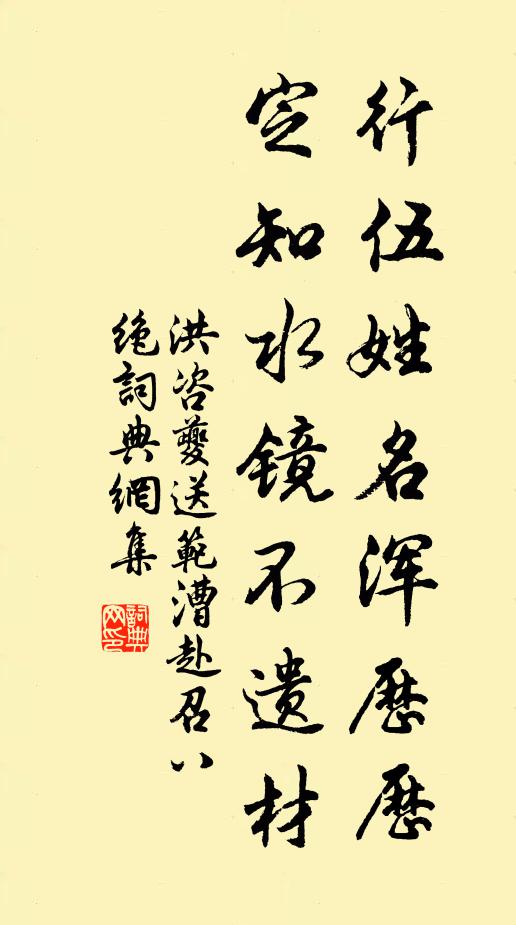 行伍姓名浑历历
定知水镜不遗材
洪咨夔送範漕赴召八
绝詞典網集
詞典
网印